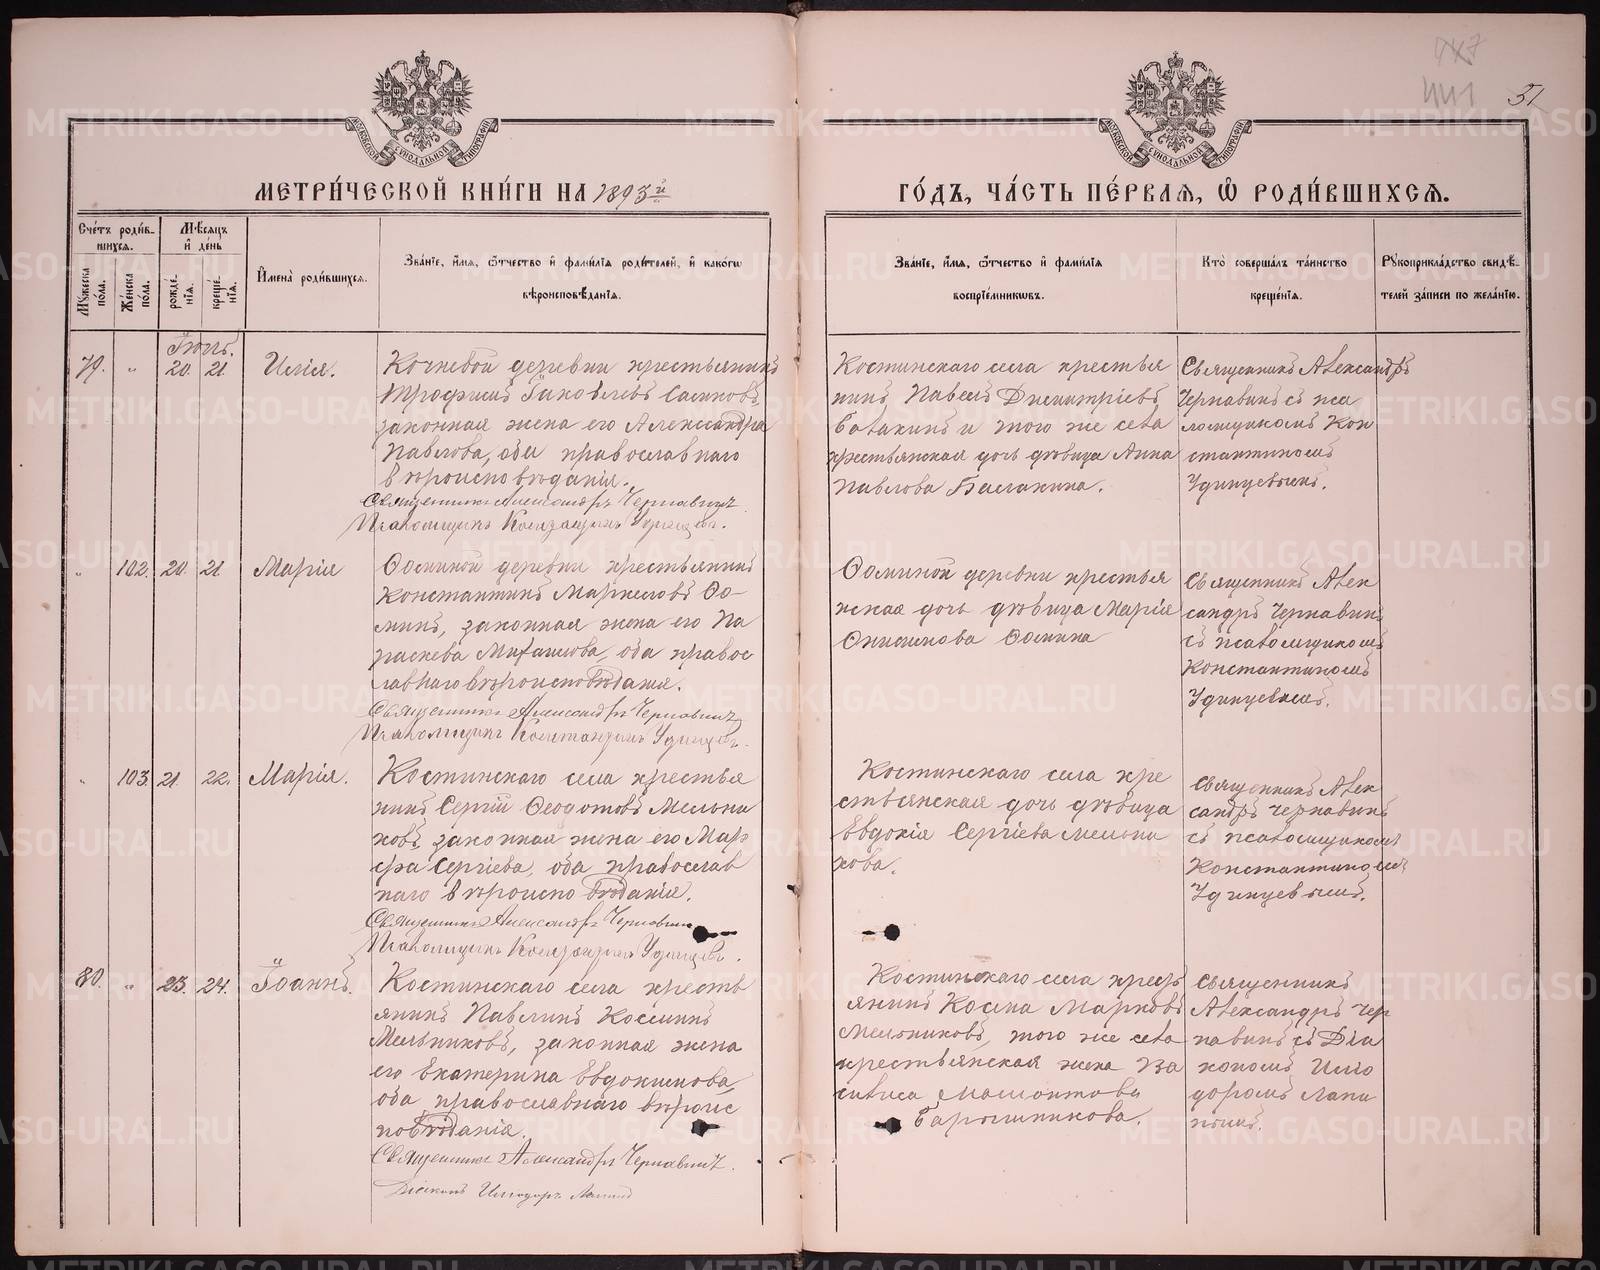 447
441
51
МОСКОВСКОЙ СѴНОДАЛЬНОЙ ТИПОГРАФІИ
МОСКОВСКОЙ СѴНОДАЛЬНОЙ ТИПОГРАФІИ
МЕТРИ́ЧЕСКОЙ КНИ́ГИ НА 1893й
ГО́ДЪ, ЧА́СТЬ ПЕ́РВАѦ, Ѽ РОДИ́ВШИХСѦ.
Сче́тъ роди́в-
шихсѧ.
Мѣ́сѧцъ
и҆ де́нь
Мꙋ́жеска
по́ла.
Же́нска
по́ла.
рожде́-
нїѧ.
креще́-
нїѧ.
И҆мена̀ роди́вшихсѧ.
Зва́нїе, и҆́мѧ, ѻ҆́тчество и҆ фами́лїѧ роди́телей, и҆ како́гѡ
вѣроисповѣ́данїѧ.
Зва́нїе, и҆́мѧ, ѻ҆́тчество и҆ фами́лїѧ
воспрїе́мникѡвъ.
Кто̀ соверша́лъ та́инство
креще́нїѧ.
Рꙋкоприкла́дство свидѣ́-
телей за́писи по жела́нїю.
Іюль.
79. " 20. 21. Илія.
Кочневой деревни крестьянинъ
Трофимъ Іаковлевъ
законная жена его Александра
Павлова, оба православнаго
вѣроисповѣданія.
Священникъ Александръ Чернавинъ
Псаломщикъ Константинъ Удинцевъ.
Костинскаго села крестья
нинъ Павелъ Димитріевъ
и того же села
крестьянская дочь дѣвица Анна
Павлова
Священникъ Александръ
Чернавинъ съ пса
ломщикомъ Кон
стантиномъ
Удинцевымъ.
" 102. 20. 21. Марія
Ѳоминой деревни крестьянинъ
Константинъ Маркеловъ Ѳо-
минъ, законная жена его Па
раскева Михаилова, оба правос
лавнаго вѣроисповѣданія.
Священникъ Александръ Чернавинъ
Псаломщикъ Константинъ Удинцевъ.
Ѳоминой деревни крестья
нская дочь дѣвица Марія
Онисимова Ѳомина
Священникъ Алек
сандръ Чернавинъ
съ псаломщикомъ
Константиномъ
Удинцевымъ.
" 103. 21. 22. Марія.
Костинскаго села крестья
нинъ Сергій Ѳеодотовъ Мельни
ковъ, законная жена его Мар
ѳа Сергіева, оба православ
наго вѣроисповѣданія.
Священникъ Александръ Чернавинъ
Псаломщикъ Константинъ Удинцевъ.
Костинскаго села кре
стьянская дочь дѣвица
Евдокія Сергіева Мельни
кова.
Священникъ Алек
сандръ Чернавинъ
съ псаломщикомъ
Константиномъ
Удинцевымъ.
80. " 23. 24. Іоаннъ.
Костинскаго села кресть
янинъ Павлинъ Косминъ
Мельниковъ, законная жена
его Екатерина Евдокимова,
оба православнаго вѣроис
повѣданія.
Священникъ Александръ Чернавинъ.
Діаконъ Илиодоръ Лапинъ
Костинскаго села кресть
янинъ Косма Марковъ
Мельниковъ, того же села
крестьянская жена Ва
силиса Мамонтова
Барышникова.
Священникъ
Александръ Чер
навинъ съ Діа
кономъ Илио
доромъ Лапи
нымъ.
METRIKI.GASO-URAL.RU